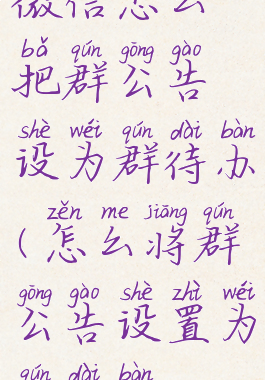 微信怎么
bǎ qún gōng gào
把群公告
shè wéi qún dài bàn
设为群待办
zěn me jiāng qún
（怎么将群
gōng gào shè zhì wéi
公告设置为
qún dài bàn